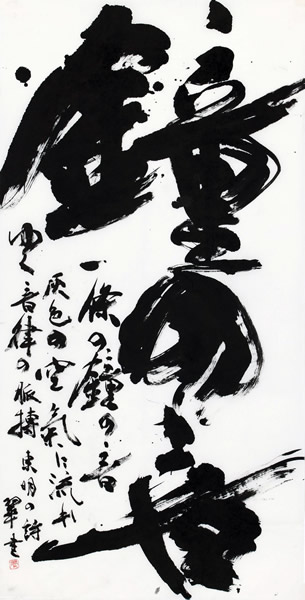 鐘の音
一條の鐘の音
灰色の空氣に流れ
ゆく音律の脈搏 東明の詩
翠